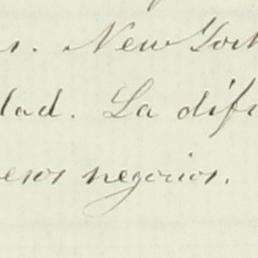 s. New York
dad. La difi
esos negocios.